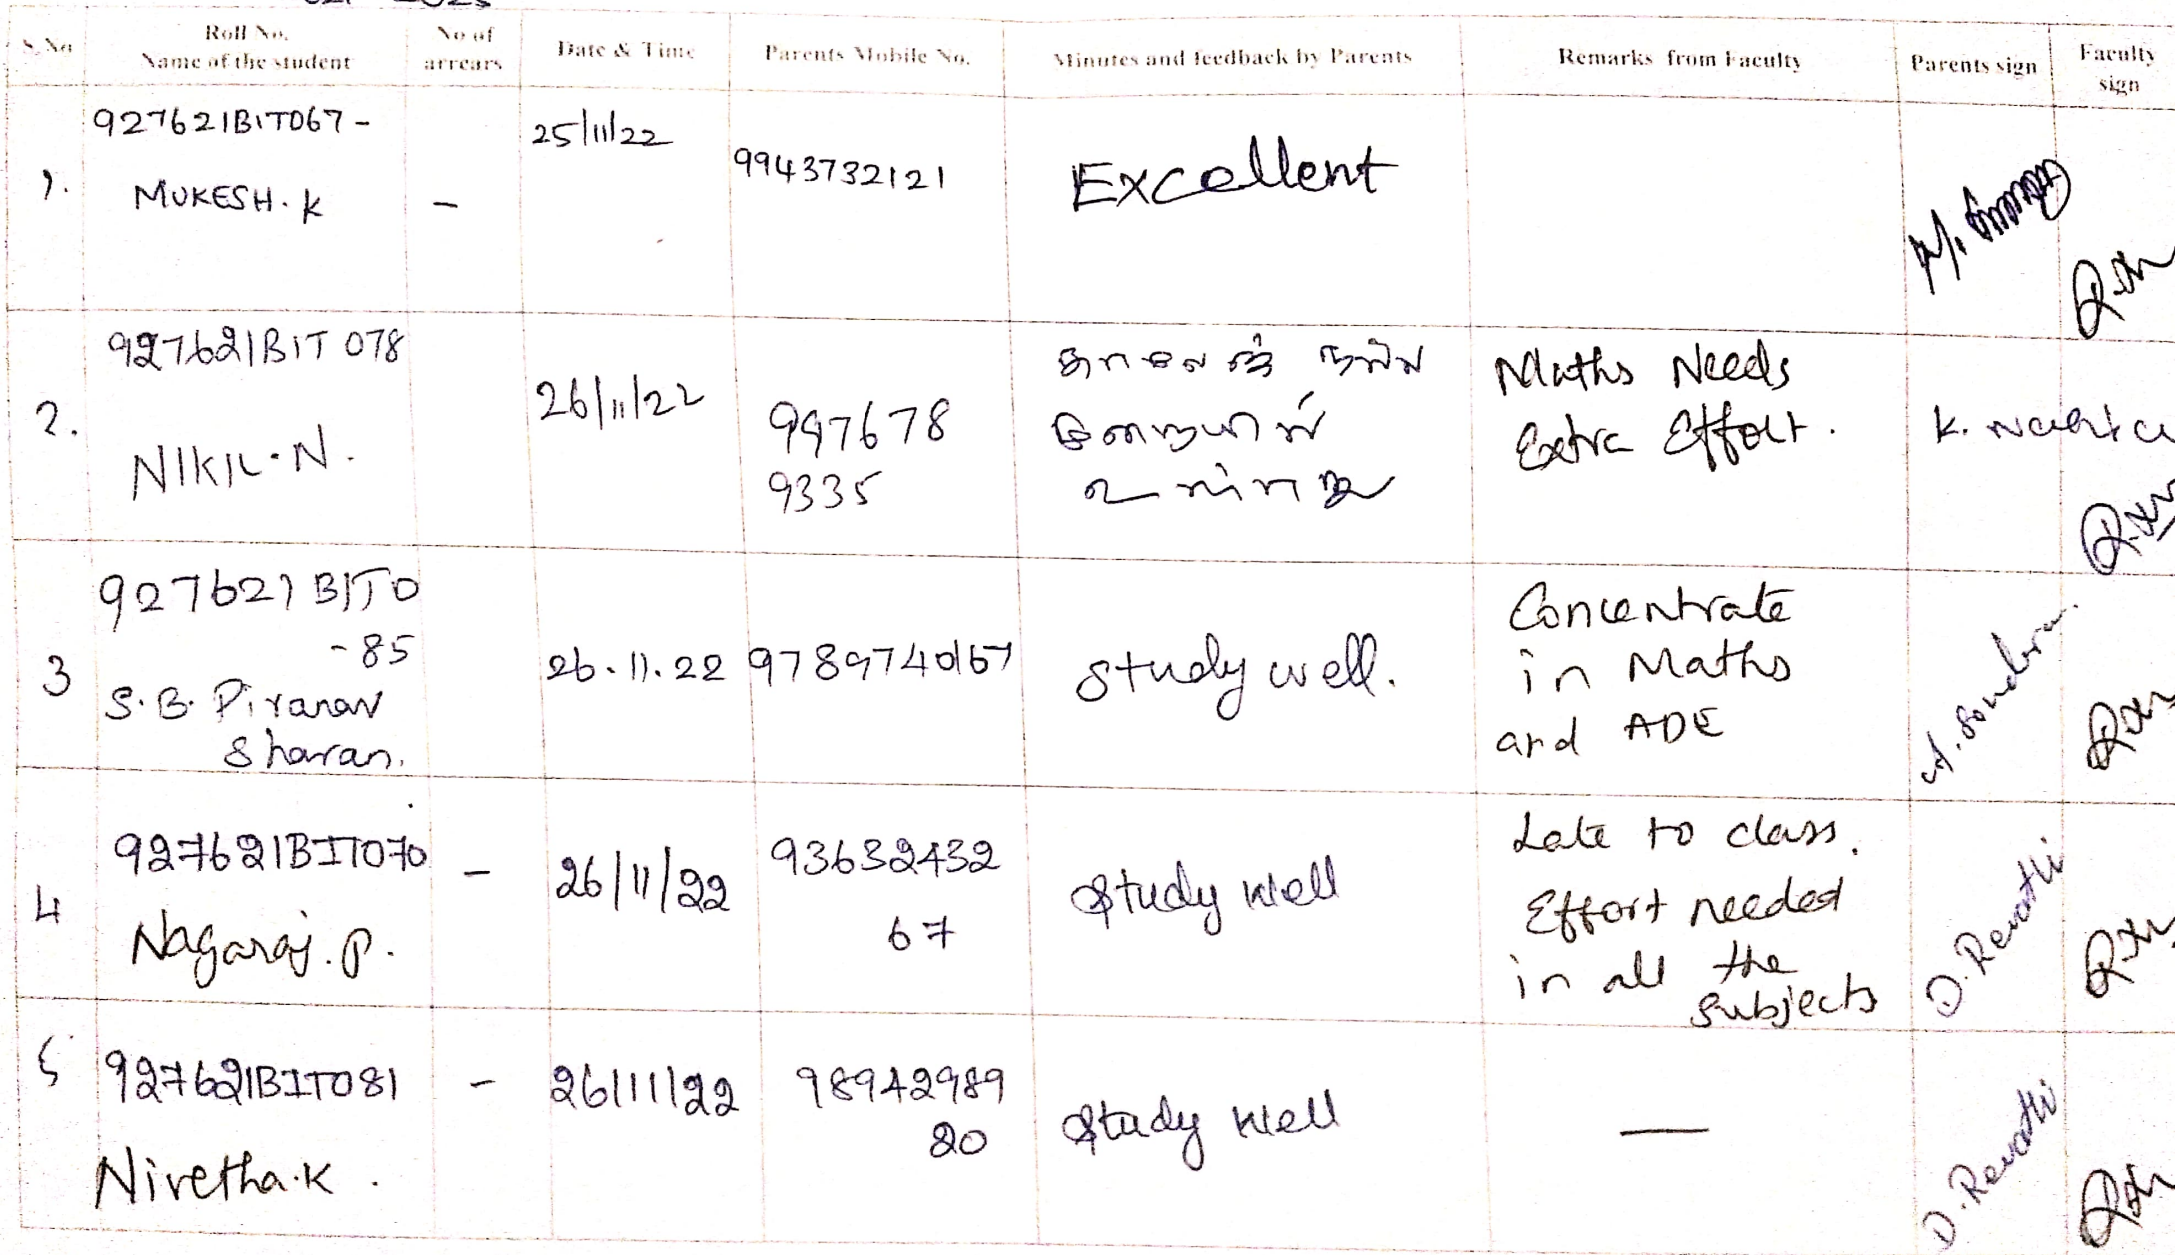 2023
S.No
Roll No.
Name of the student
No of
arrears
Date & Time
Parents Mobile No.
Minutes and feedback by Parents
Remarks from Faculty
Parents sign
Faculty
sign
1.
927621BIT067-
MUKESH. K
-
25/11/22
9943732121
Excellent
2.
927621BIT 078
NIKIL.N.
26/11/22
997678
9335
நல்ல
உள்ளது
Maths Needs
Extra Effort.
3
927621 BIT0
-85
S.B. Piranav
Sharan.
26.11.22
9789740167
Study well.
Concentrate
in Maths
and ADE
4
927621BIT070
Nagaraj.P.
-
26/11/22
93632432
67
Study well
Late to class.
Effort needed
in all the
Subjects
D. Revathi
5
927621BIT081
Nivetha.K.
-
26/11/22
98942989
20
Study well
—
D. Revathi